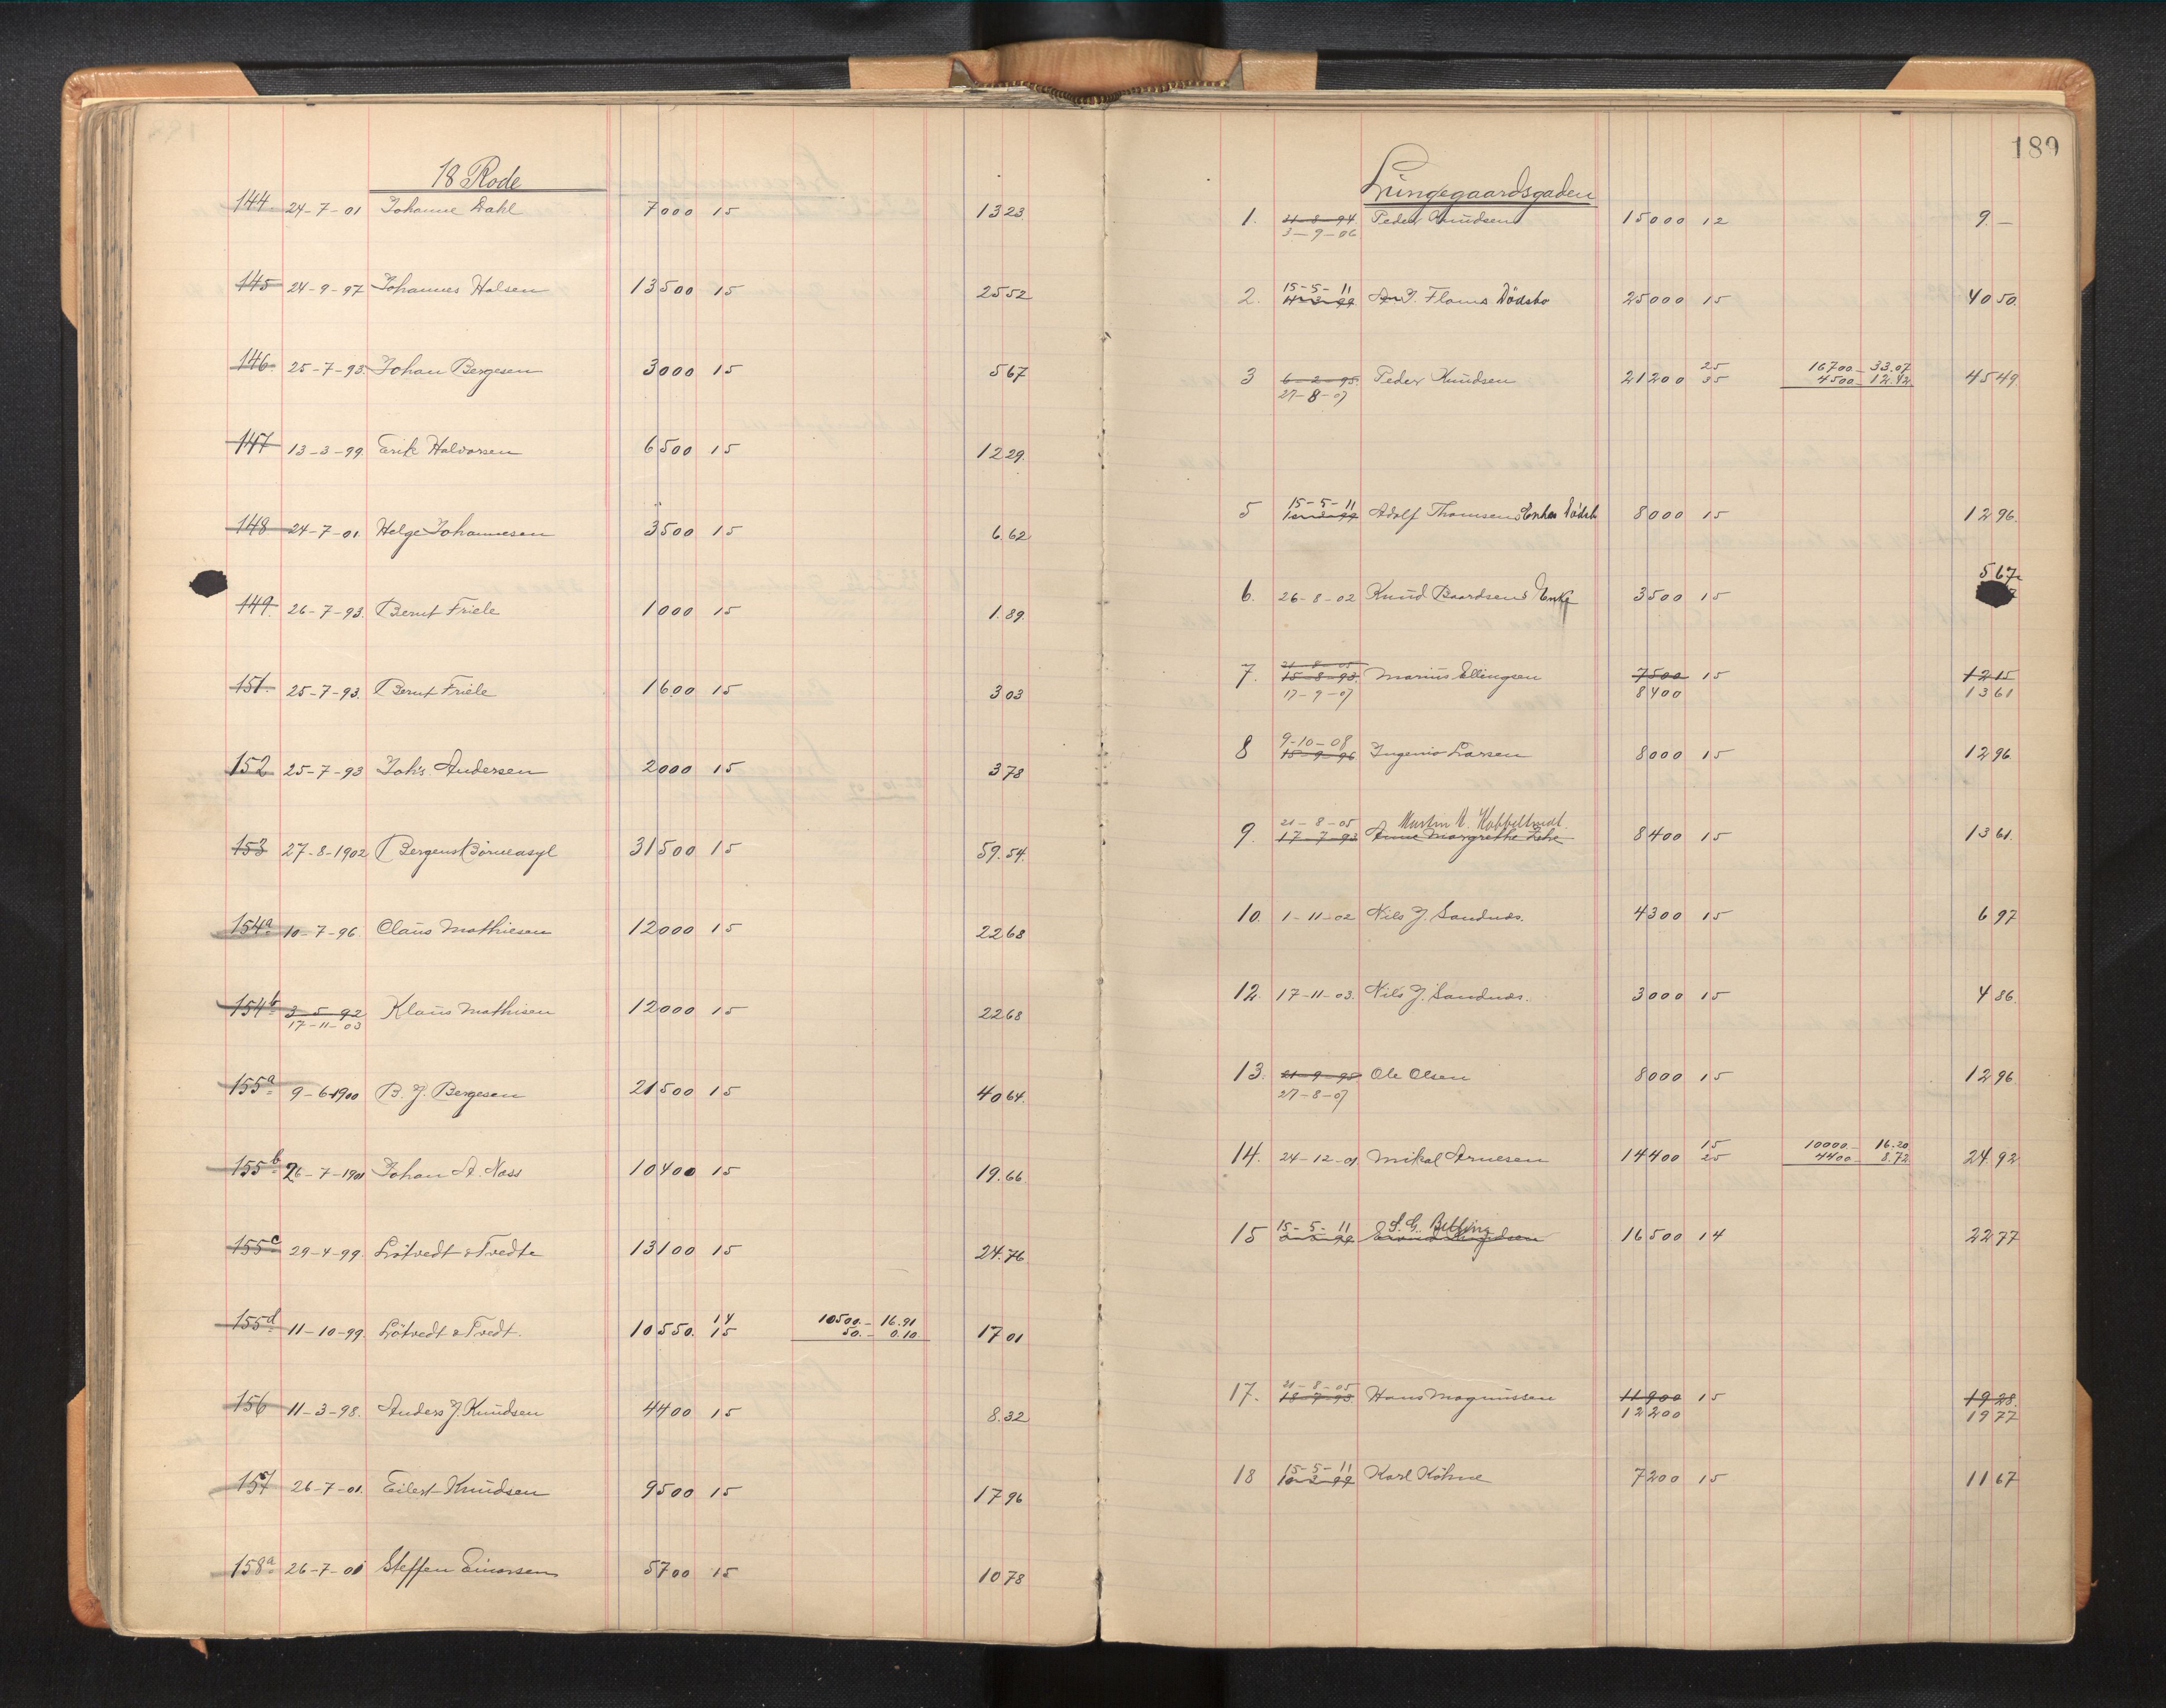 18 Rode
144. 24-7-01 Johanne Dahl 7000 15 1323
145 24-9-97 Johannes Halsen 13500 15 2552
146. 25-7-93. Johan Bergesen 3000 15 567
147 13-3-99. Erik Halvorsen 6500 15 1229.
148 24-7-01. Helge Johannesen 3500 15 6.62
149. 26-7-93. Bernt Friele 1000 15 1.89.
151. 25-7-93. Bernt Friele 1600 15 303
152 25-7-93 Johs. Andersen 2000 15 378
153 27-8-1902 Bergens Börneasyl 31500 15 59.54.
154a 10-7-96. Claus Mathiesen 12000 15 2268
154b 3-5-92 Klaus Mathisen 12000 15 2268
17-11-03
155a 9-6-1900 B. J. Bergesen 21500 15 4064.
155b 26-7-1901 Johan A. Næss 10400 15 19.66
155c 29-4-99. Lötvedt & Tvedte 13100 15 24.76
14 10500.- 16.91
155d 11-10-99. Lötvedt & Tvedt. 10550. 15 50.- 0.10 1701
156 11-3-98. Anders J. Knudsen 4400 15 8.32
157 26-7-01. Eilert Knudsen 9500 15 1796
158a 26-7-01 Steffen Einarsen 5700 15 1078
189
Lungegaardsgaden
1. 21-8-94 Peder Knudsen 15000 12 9.-
3-9-06
15-5-11
2. J. Flams Dödsbo 25000 15 4050.
25 16700.- 33.07
3 6-2-95. Peder Knudsen 21200 35 4500- 12.42 4549
27-8-07
15-5-11
5 Adolf Thomsens Enkes Dödsb 8000 15 1296.
567.
6. 26-8-02 Knud Baardsens Enke 3500 15
21-8-05
7. 15-8-93. Marius Ellingsen 7500 15 1215
17-9-07 8400 1361
9-10-08
8 15-9-96 Larsen 8000 15 1296
21-8-05 Martin
9. 17-7-93 Anne Margrethe 8400 15 1361.
10. 1-11-02 Nils J. Sandnæs. 4300 15 697
12. 17-11-03. Nils J. Sandnæs. 3000 15 486.
13. 21-9-95 Ole Olsen 8000 15 1296
27-8-07
15 10000.- 16.20
14. 24-12-01 Mikal Arnesen 14400 25 4400- 8.72 2492
15-5-11 S. G. Belling
15 16500 14 2277
21-8-05
17. 18-7-93. Hans Magnussen 11900 15 1928.
12200 1977
15-5-11
18 Karl Köhne 7200 15 1167